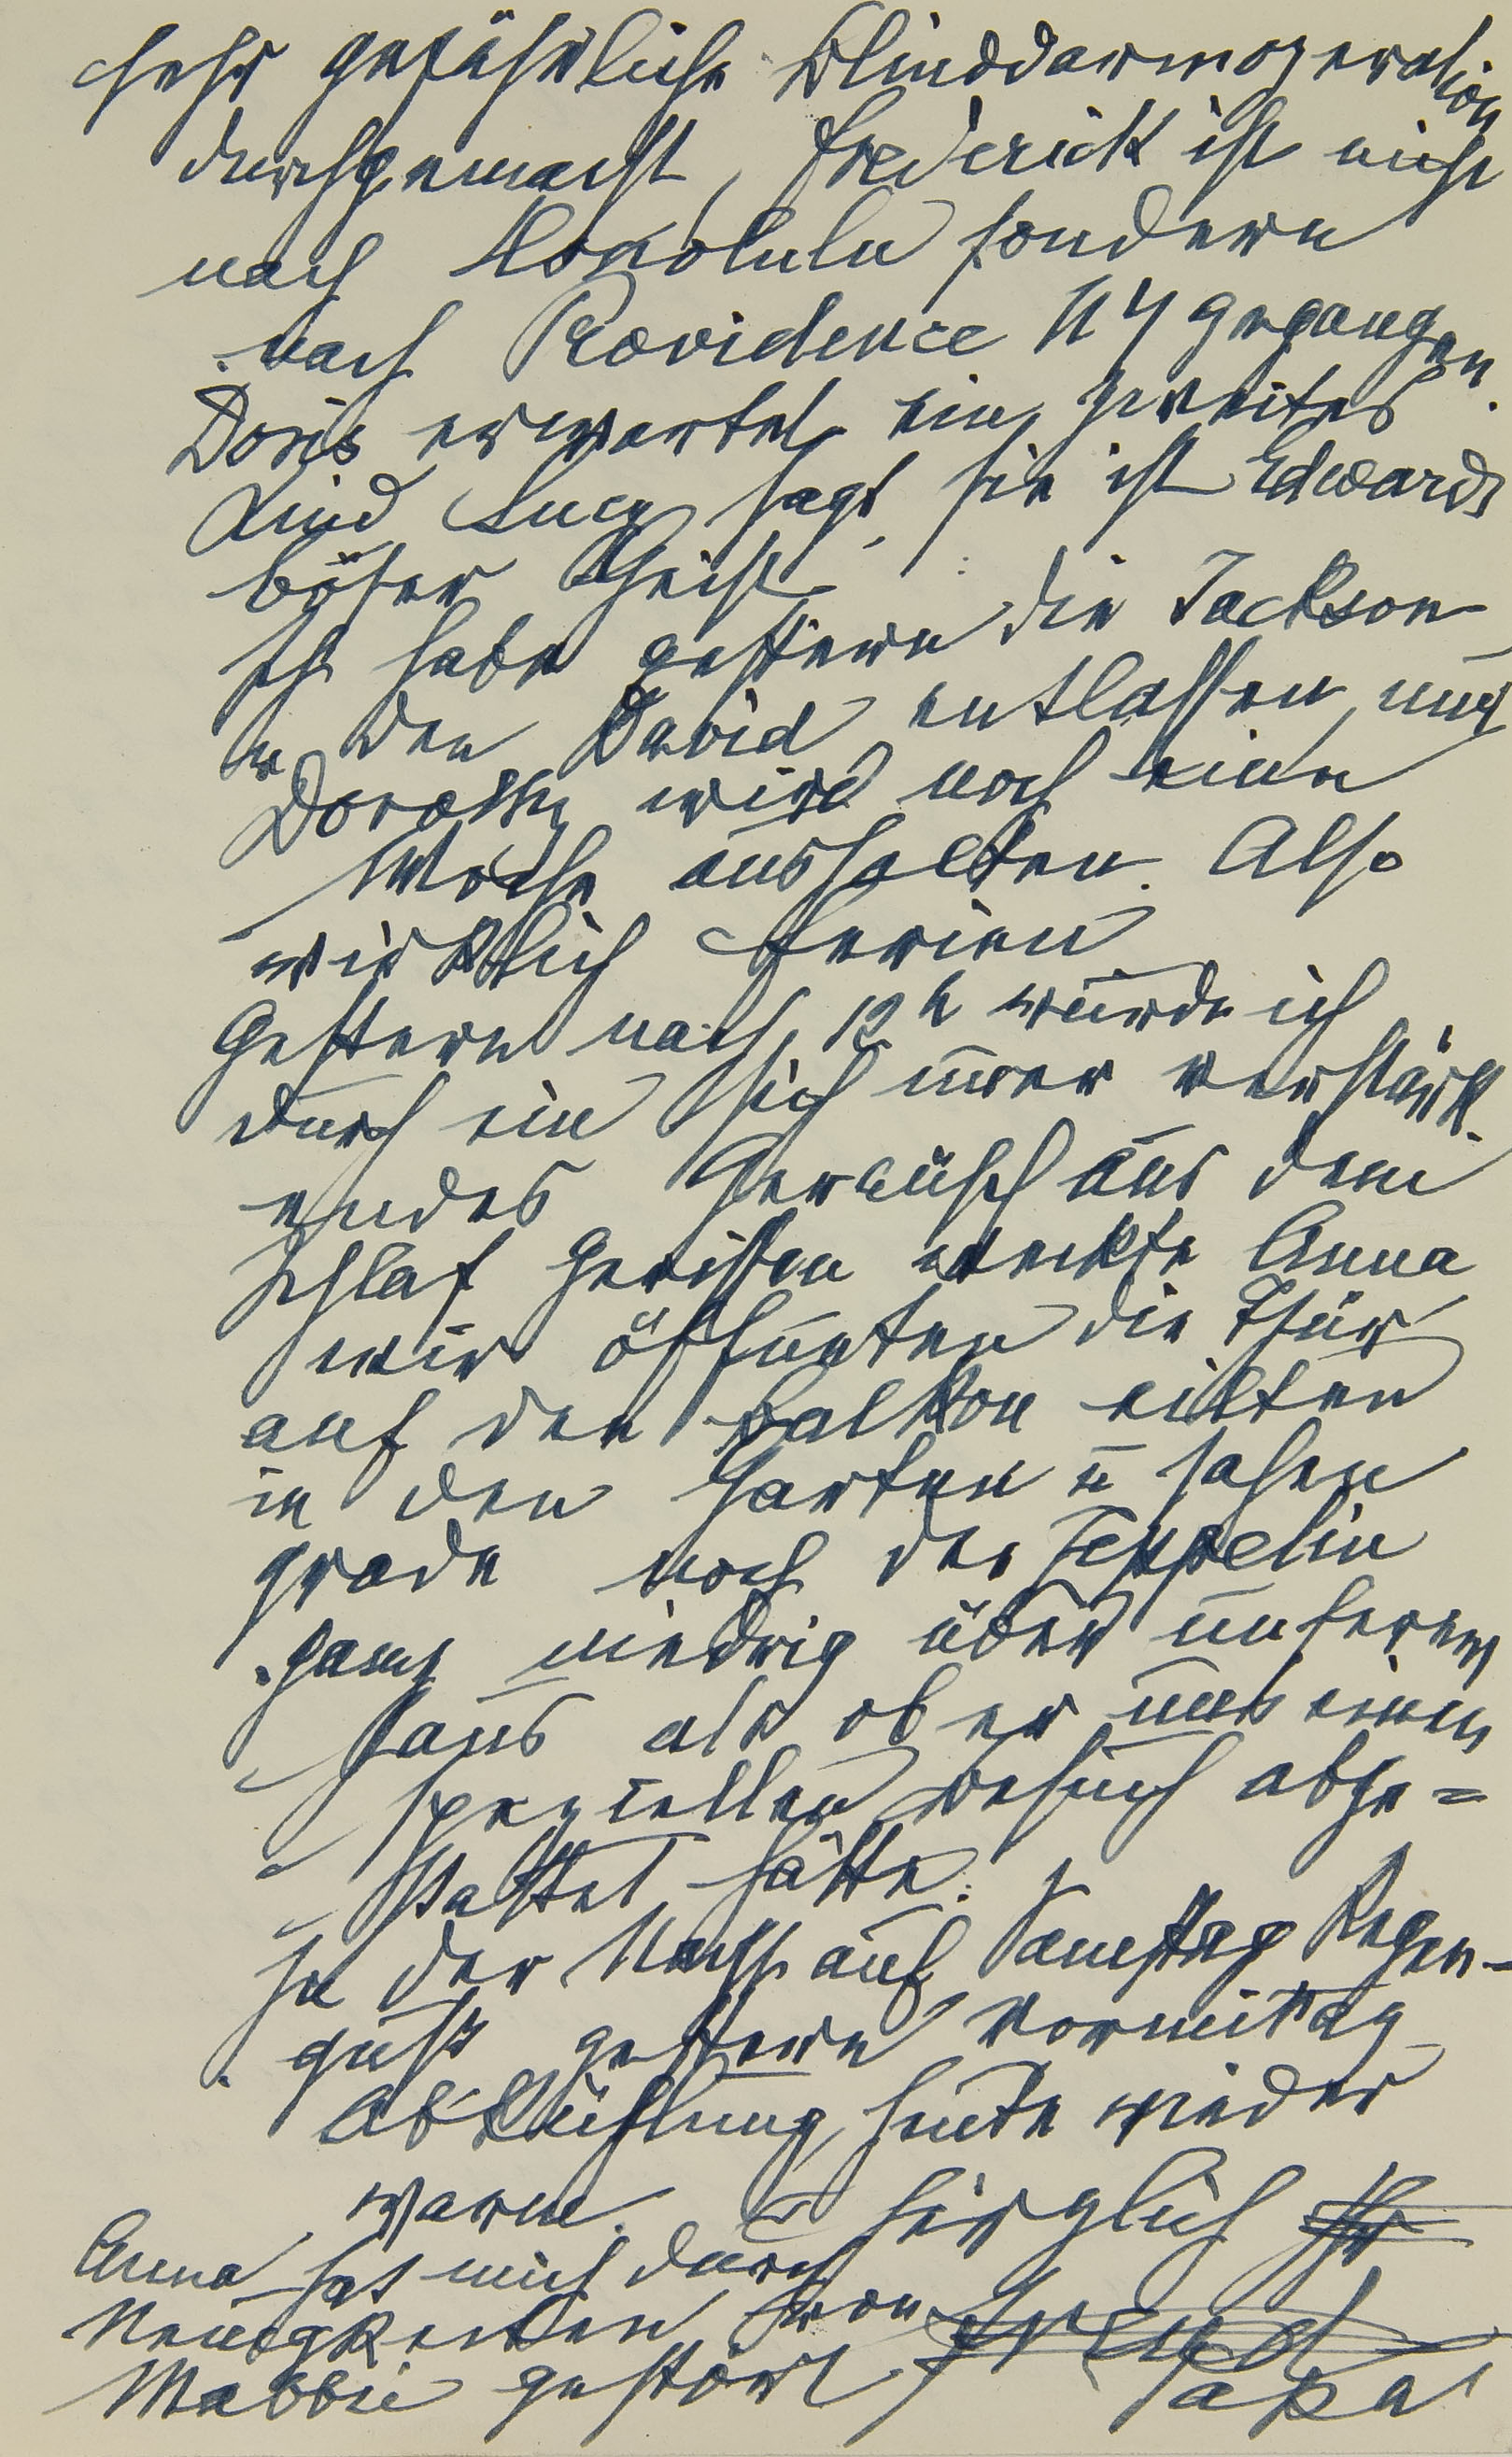 sehr gefährliche Blinddarmoperation
durchgemacht, Frederick ist nicht
nach Honolulu sondern
nach Providence NY gegangen.
Doris erwartet ein zweites
Kind Lucy sagt, sie ist Edwards
böser Geist.
Ich habe gestern die Jackson
u den David entlassen, und
Dorothy wird noch eine
Woche aushalten. Also
wirklich Ferien
Gestern nach 12h wurde ich
durch ein sich immer verstärk-
endes Geräusch aus dem
Schlaf gerissen weckte Anna
wir öffneten die Thür
auf den Balkon eilten
in den Garten u sahen
grade noch den Zeppelin
ganz niedrig über unserem
Haus als ob er uns einen
speziellen Besuch abge=
stattet hätte.
In der Nacht auf Samstag Regen-
guss gestern Vormittag
Abkühlung, heute wieder
warm. herzlich Ihr
Freud
Papa
Anna hat mich durch
Neuigkeiten von
Mabbie gestört